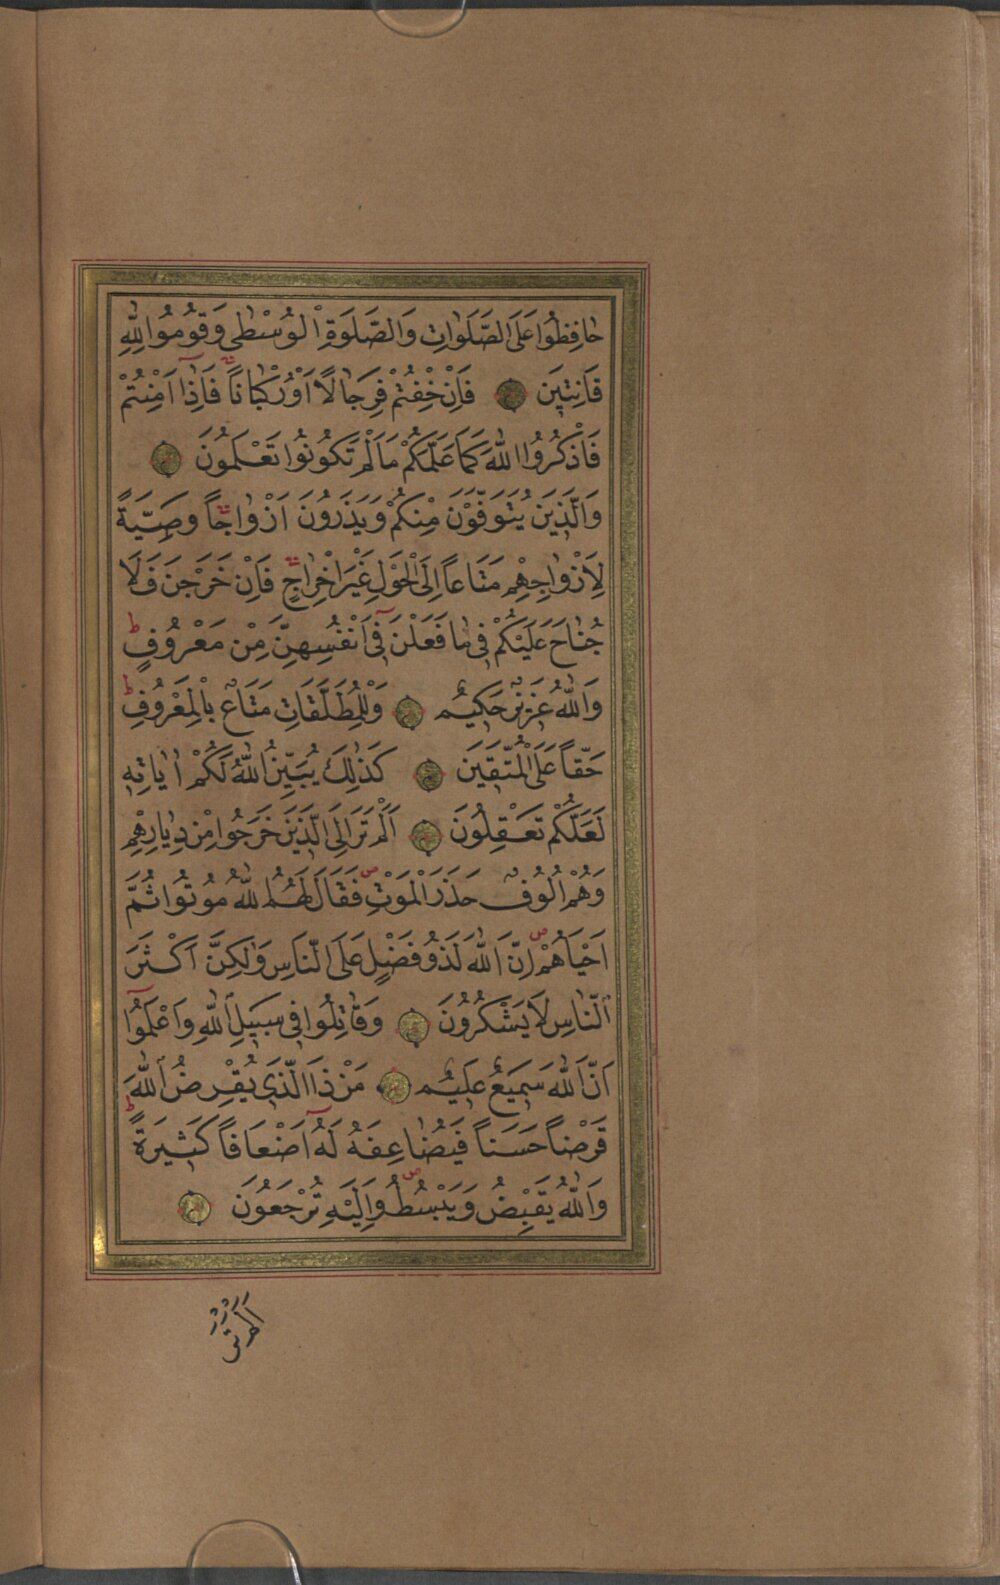 حَافِظُوا عَلَى الصَّلَوَاتِ وَالصَّلَوةِ الْوُسْطٰى وَقُومُوا لِلّٰهِ
قَانِتِينَ فَاِنْ خِفْتُمْ فَرِجَالًا اَوْ رُكْبَانًا فَاِذَٓا اَمِنْتُمْ
فَاذْكُرُوا اللّٰهَ كَمَا عَلَّمَكُمْ مَا لَمْ تَكُونُوا تَعْلَمُونَ
وَالَّذِينَ يُتَوَفَّوْنَ مِنْكُمْ وَيَذَرُونَ اَزْوَاجًا وَصِيَّةً
لِاَزْوَاجِهِمْ مَتَاعًا اِلَى الْحَوْلِ غَيْرَ اِخْرَاجٍ فَاِنْ خَرَجْنَ فَلَا
جُنَاحَ عَلَيْكُمْ فِى مَا فَعَلْنَ فِٓى اَنْفُسِهِنَّ مِنْ مَعْرُوفٍ ط
وَاللّٰهُ عَزِيزٌ حَكِيمٌ وَلِلْمُطَلَّقَاتِ مَتَاعٌ بِالْمَعْرُوفِ ط
حَقًّا عَلَى الْمُتَّقِينَ كَذٰلِكَ يُبَيِّنُ اللّٰهُ لَكُمْ اٰيَاتِهِ
لَعَلَّكُمْ تَعْقِلُونَ اَلَمْ تَرَ اِلَى الَّذِينَ خَرَجُوا مِنْ دِيَارِهِمْ
وَهُمْ اُلُوفٌ حَذَرَ الْمَوْتِ ص فَقَالَ لَهُمُ اللّٰهُ مُوتُوا ثُمَّ
اَحْيَاهُمْ ص اِنَّ اللّٰهَ لَذُو فَضْلٍ عَلَى النَّاسِ وَلٰكِنَّ اَكْثَرَ
النَّاسِ لَا يَشْكُرُونَ وَقَاتِلُوا فِى سَبِيلِ اللّٰهِ وَاعْلَمُٓوا
اَنَّ اللّٰهَ سَمِيعٌ عَلِيمٌ مَنْ ذَا الَّذِى يُقْرِضُ اللّٰهَ
قَرْضًا حَسَنًا فَيُضَاعِفَهُ لَهُٓ اَضْعَافًا كَثِيرَةً ط
وَاللّٰهُ يَقْبِضُ وَيَبْسُطُ ص وَاِلَيْهِ تُرْجَعُونَ
اَلَمْ تَرَ